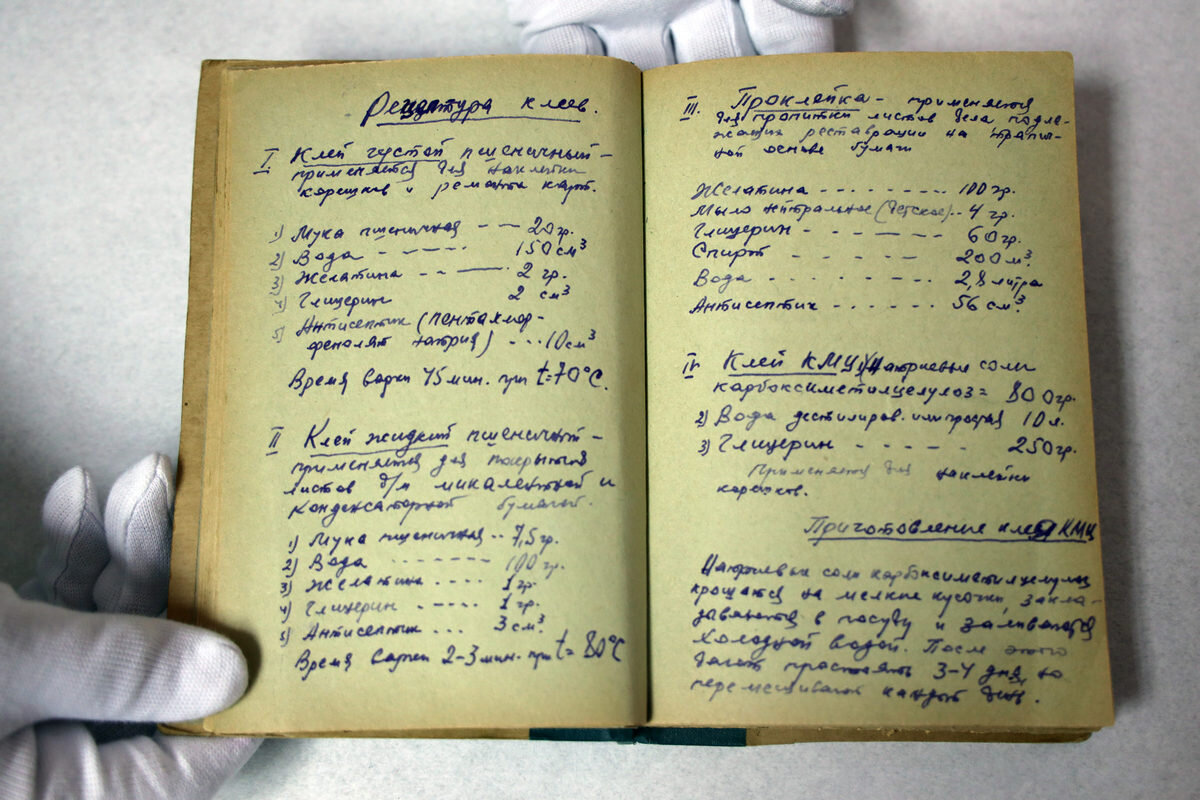 Рецептура клеев.
I Клей густой пшеничный –
применяется для наклейки
корешков и ремонта карт.
1) Мука пшеничная - - - 20 гр.
2) Вода - - - - - 150 см³
3) Желатина - - - - 2 гр.
4) Глицерин 2 см³
5) Антисептик (пентахлор-
фенолят натрия) - - - 10 см³
Время варки 15 мин. при t=70°С.
II Клей жидкий пшеничный –
применяется для покрытия
листов д/м микалентной и
конденсаторной бумагой.
1) Мука пшеничная .. 7,5 гр.
2) Вода - - - - - - - 100 гр.
3) Желатина - - - - 1 гр.
4) Глицерин - - - - - 1 гр.
5) Антисептик ... 3 см³.
Время варки 2-3 мин. при t= 80°С
III. Проклейка – применяется
для пропитки листов дела подле-
жащих реставрации на
ной основе бумаги
Желатина - - - - - - - - - 100 гр.
Мыло нейтральное (детское) .. 4 гр.
Глицерин - - - - - - - 60 гр.
Спирт - - - - - - 200 м³.
Вода . . . . . . . . 2,8 литра
Антисептик . . . . . . 56 см³.
IV Клей КМЦ 1) Натриевые соли
карбоксиметилцелулоз = 800 гр.
2) Вода дестилиров. или простая 10 л.
3) Глицерин - - - - - 250 гр.
Применяется для наклейки
корешков.
Приготовление клея КМЦ
Натриевые соли карбоксиметилцелулоз
крошатся на мелкие кусочки, закла-
дываются в посуду и заливаются
холодной водой. После этого
дают простоять 3-4 дня, но
перемешивают каждый день.